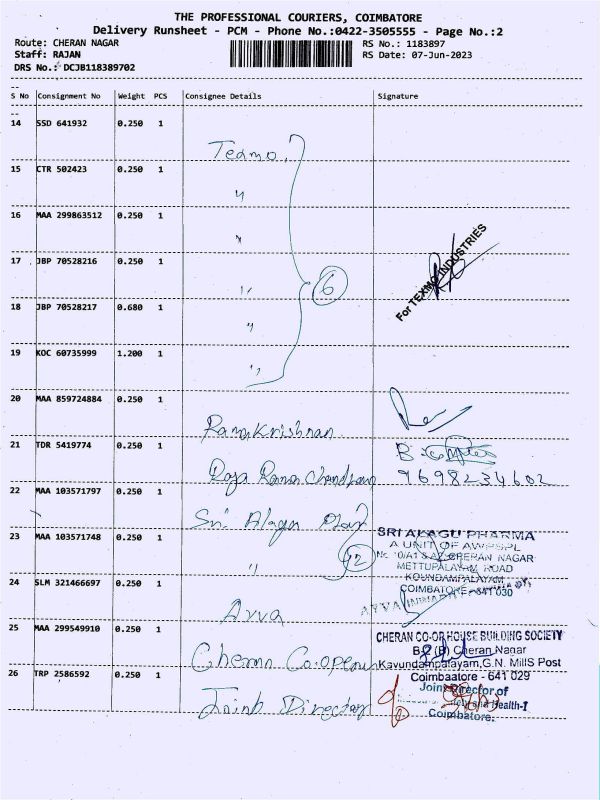 THE PROFESSIONAL COURIERS, COIMBATORE
Delivery Runsheet - PCM - Phone No.:0422-3505555 - Page No.:2
Route: CHERAN NAGAR RS No.: 1183897
Staff: RAJAN RS Date: 07-Jun-2023
DRS No.: DCJB118389702
--
S No Consignment No Weight PCS Consignee Details Signature
--
14 SSD 641932 0.250 1
Teamo,
15 CTR 502423 0.250 1
"
16 MAA 299863512 0.250 1
"
17 JBP 70528216 0.250 1
" 6
For TEXMO INDUSTRIES
18 JBP 70528217 0.680 1
"
19 KOC 60735999 1.200 1
"
20 MAA 859724884 0.250 1
RamaKrishnan
21 TDR 5419774 0.250 1
Raja Rama Chandran 9698234602
22 MAA 103571797 0.250 1
Sri Alagu
23 MAA 103571748 0.250 1
" 2
SRI ALAGU PHARMA
A UNIT OF AWPSPL
CHERAN NAGAR
METTUPALAYAM ROAD
KOUNDAMPALAYAM
COIMBATORE - 641 030
24 SLM 321466697 0.250 1
Avva
25 MAA 299549910 0.250 1
CHERAN CO-OP HOUSE BUILDING SOCIETY
Cheran Nagar
Kavundampalayam, G.N. Mills Post
Coimbatore - 641 029
26 TRP 2586592 0.250 1
Joint Director
Joint Director of
and Health-I
Coimbatore.